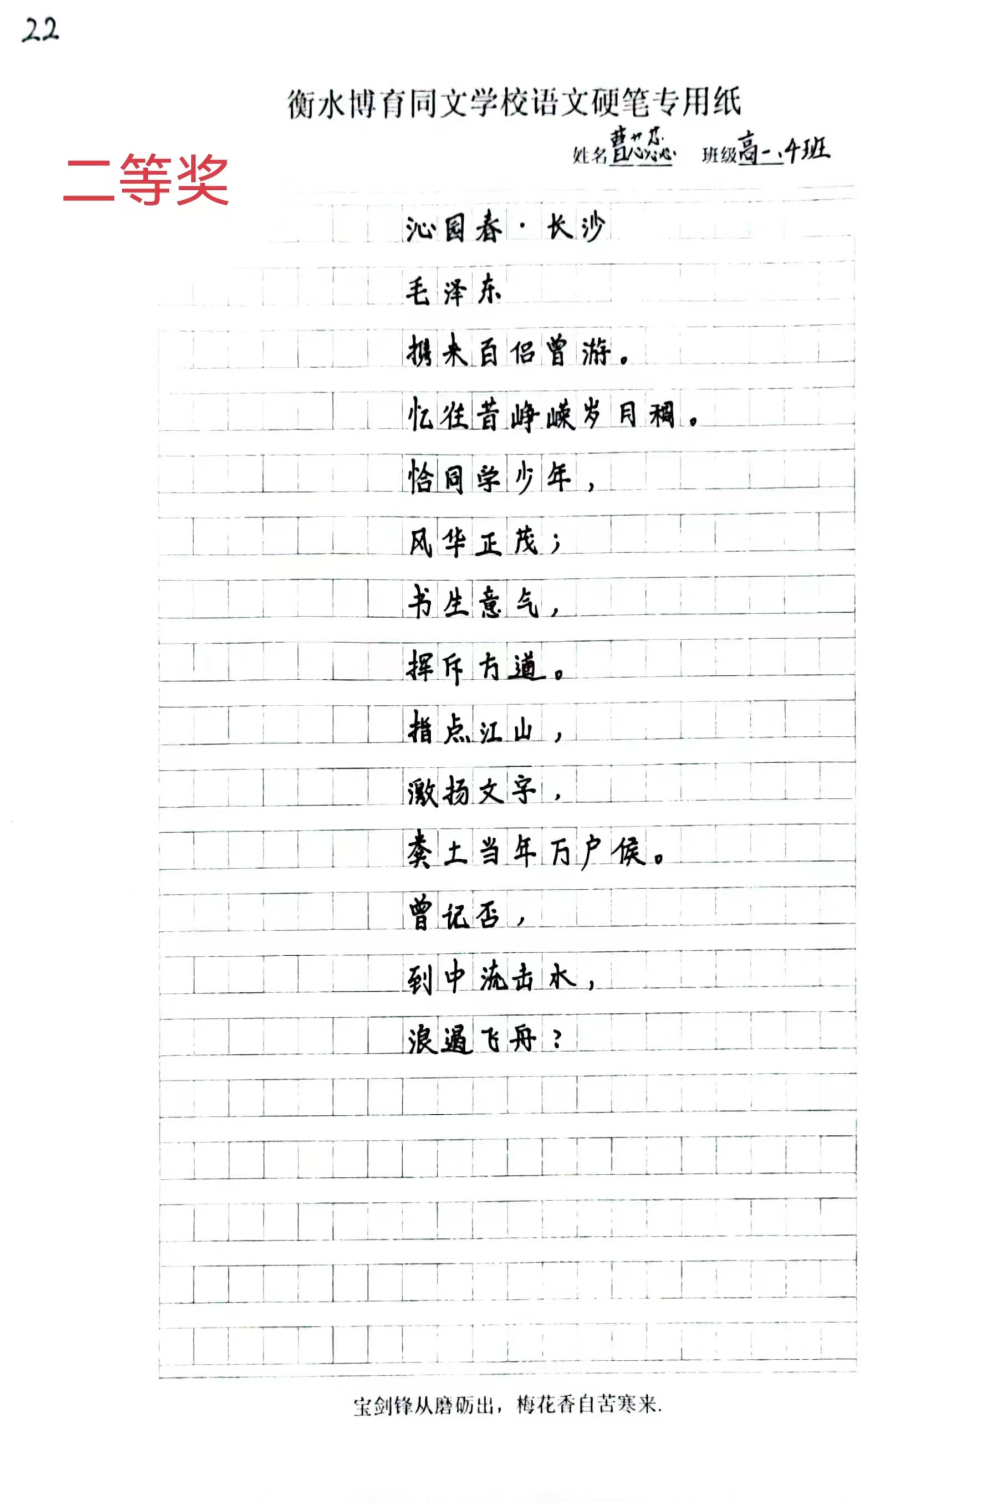 22
衡水博育同文学校语文硬笔专用纸
姓名曹芯蕊 班级高一.4班
二等奖
沁园春·长沙
毛泽东
携来百侣曾游。
忆往昔峥嵘岁月稠。
恰同学少年，
风华正茂；
书生意气，
挥斥方遒。
指点江山，
激扬文字，
粪土当年万户侯。
曾记否，
到中流击水，
浪遏飞舟？
宝剑锋从磨砺出，梅花香自苦寒来.